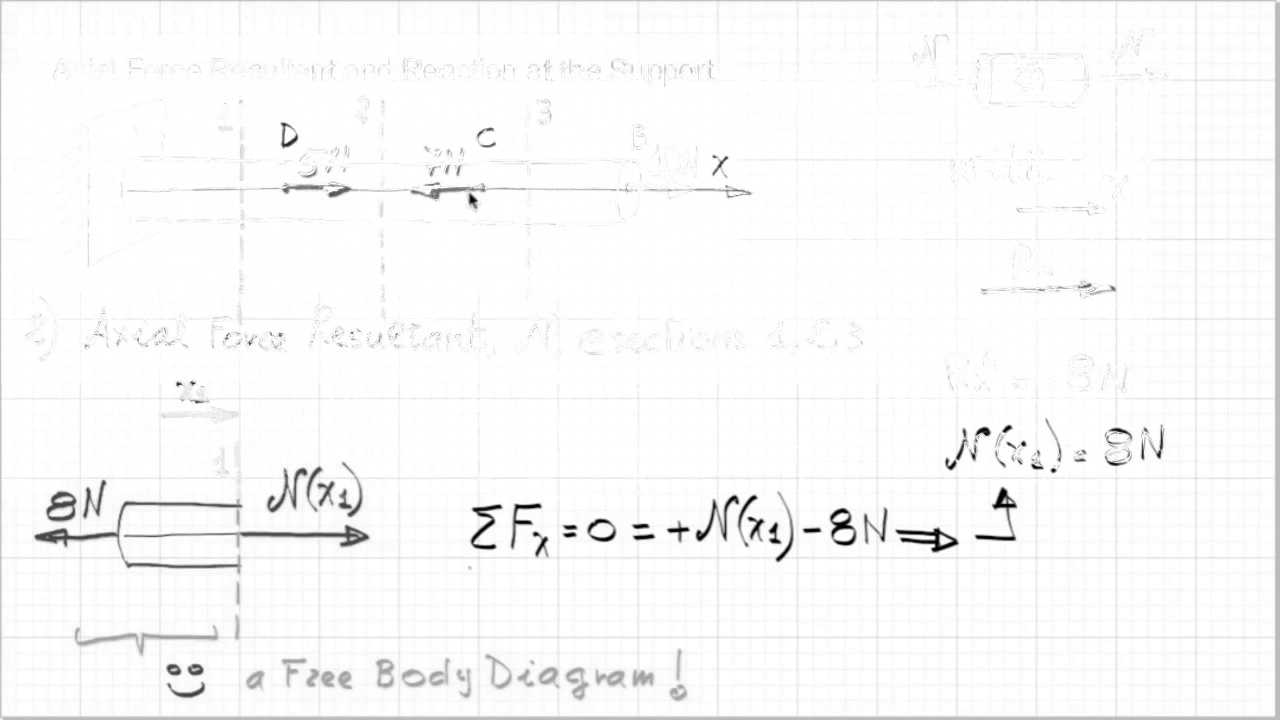 Axial Force Resultant and Reaction at the Support
N N
1 2 3
D C B
5N 7N 10N X
with x
2) Axial Force Resultant, N, @ sections 1,2,3
Rx = -8N
x₁
N(x₁) = 8N
1
8N N(x₁)
ΣFₓ = 0 = +N(x₁) - 8N ⇒
a Free Body Diagram!